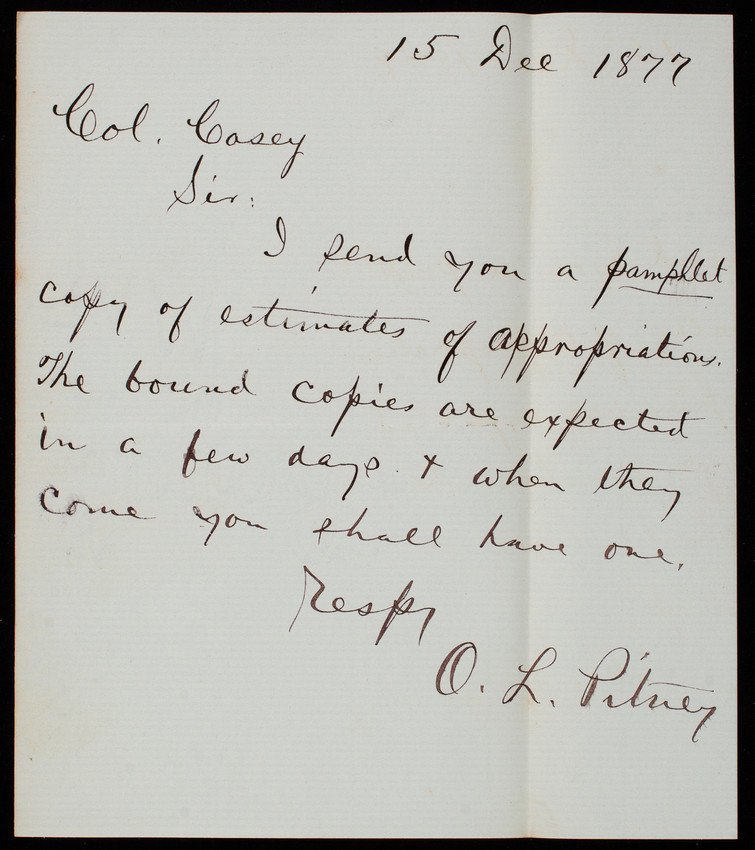 15 Dec 1877
Col. Casey
Sir:
I send you a pamphlet
copy of estimates of appropriations.
The bound copies are expected
in a few days & when they
come you shall have one.
Respy
O. L. Pitney